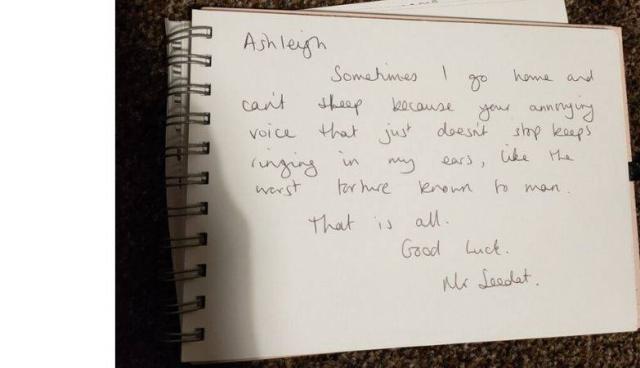 Ashleigh
Sometimes I go home and
can't sheep because your annoying
voice that just doesn't stop keeps
ringing in my ears, like the
worst torture known to man.
That is all.
Good Luck.
Mr Seedat.